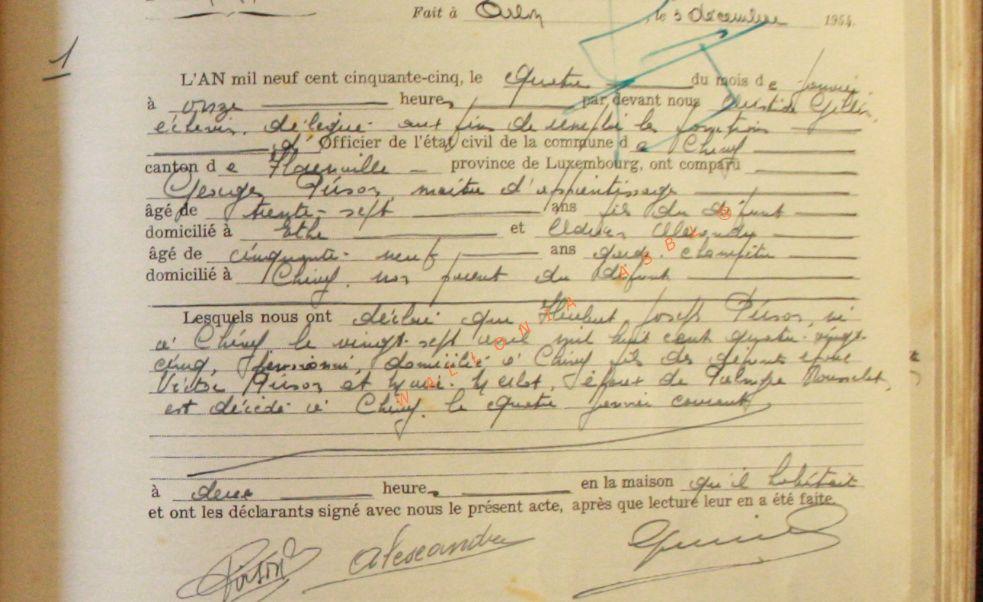 Fait à Arlon, le 3 décembre 1954.
1
L'AN mil neuf cent cinquante-cinq, le quatre du mois de janvier
à onze heures par devant nous
échevin, délégué aux fins de remplir les fonctions
d' Officier de l'état civil de la commune de Chiny
canton de Florenville province de Luxembourg, ont comparu
Georges Pierson, maître d'apprentissage
âgé de trente-sept ans fils du défunt
domicilié à Ethe et Alexandre
âgé de cinquante-neuf ans garde champêtre
domicilié à Chiny non parent du défunt
Lesquels nous ont déclaré que Hubert Joseph Pierson, né
à Chiny le vingt-sept mil huit cent quatre-vingt-
cinq, pensionné, domicilié à Chiny fils des défunts époux
Victor Pierson et Marie, époux de Palmyre
est décédé à Chiny le quatre janvier courant
à deux heures en la maison qu'il habitait
et ont les déclarants signé avec nous le présent acte, après que lecture leur en a été faite
Pierson Alexandre
WALLONIA ASBL ©